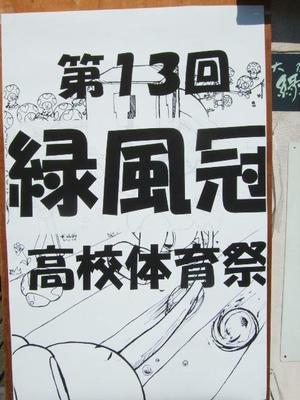 第13回
緑風冠
高校体育祭
大
緑